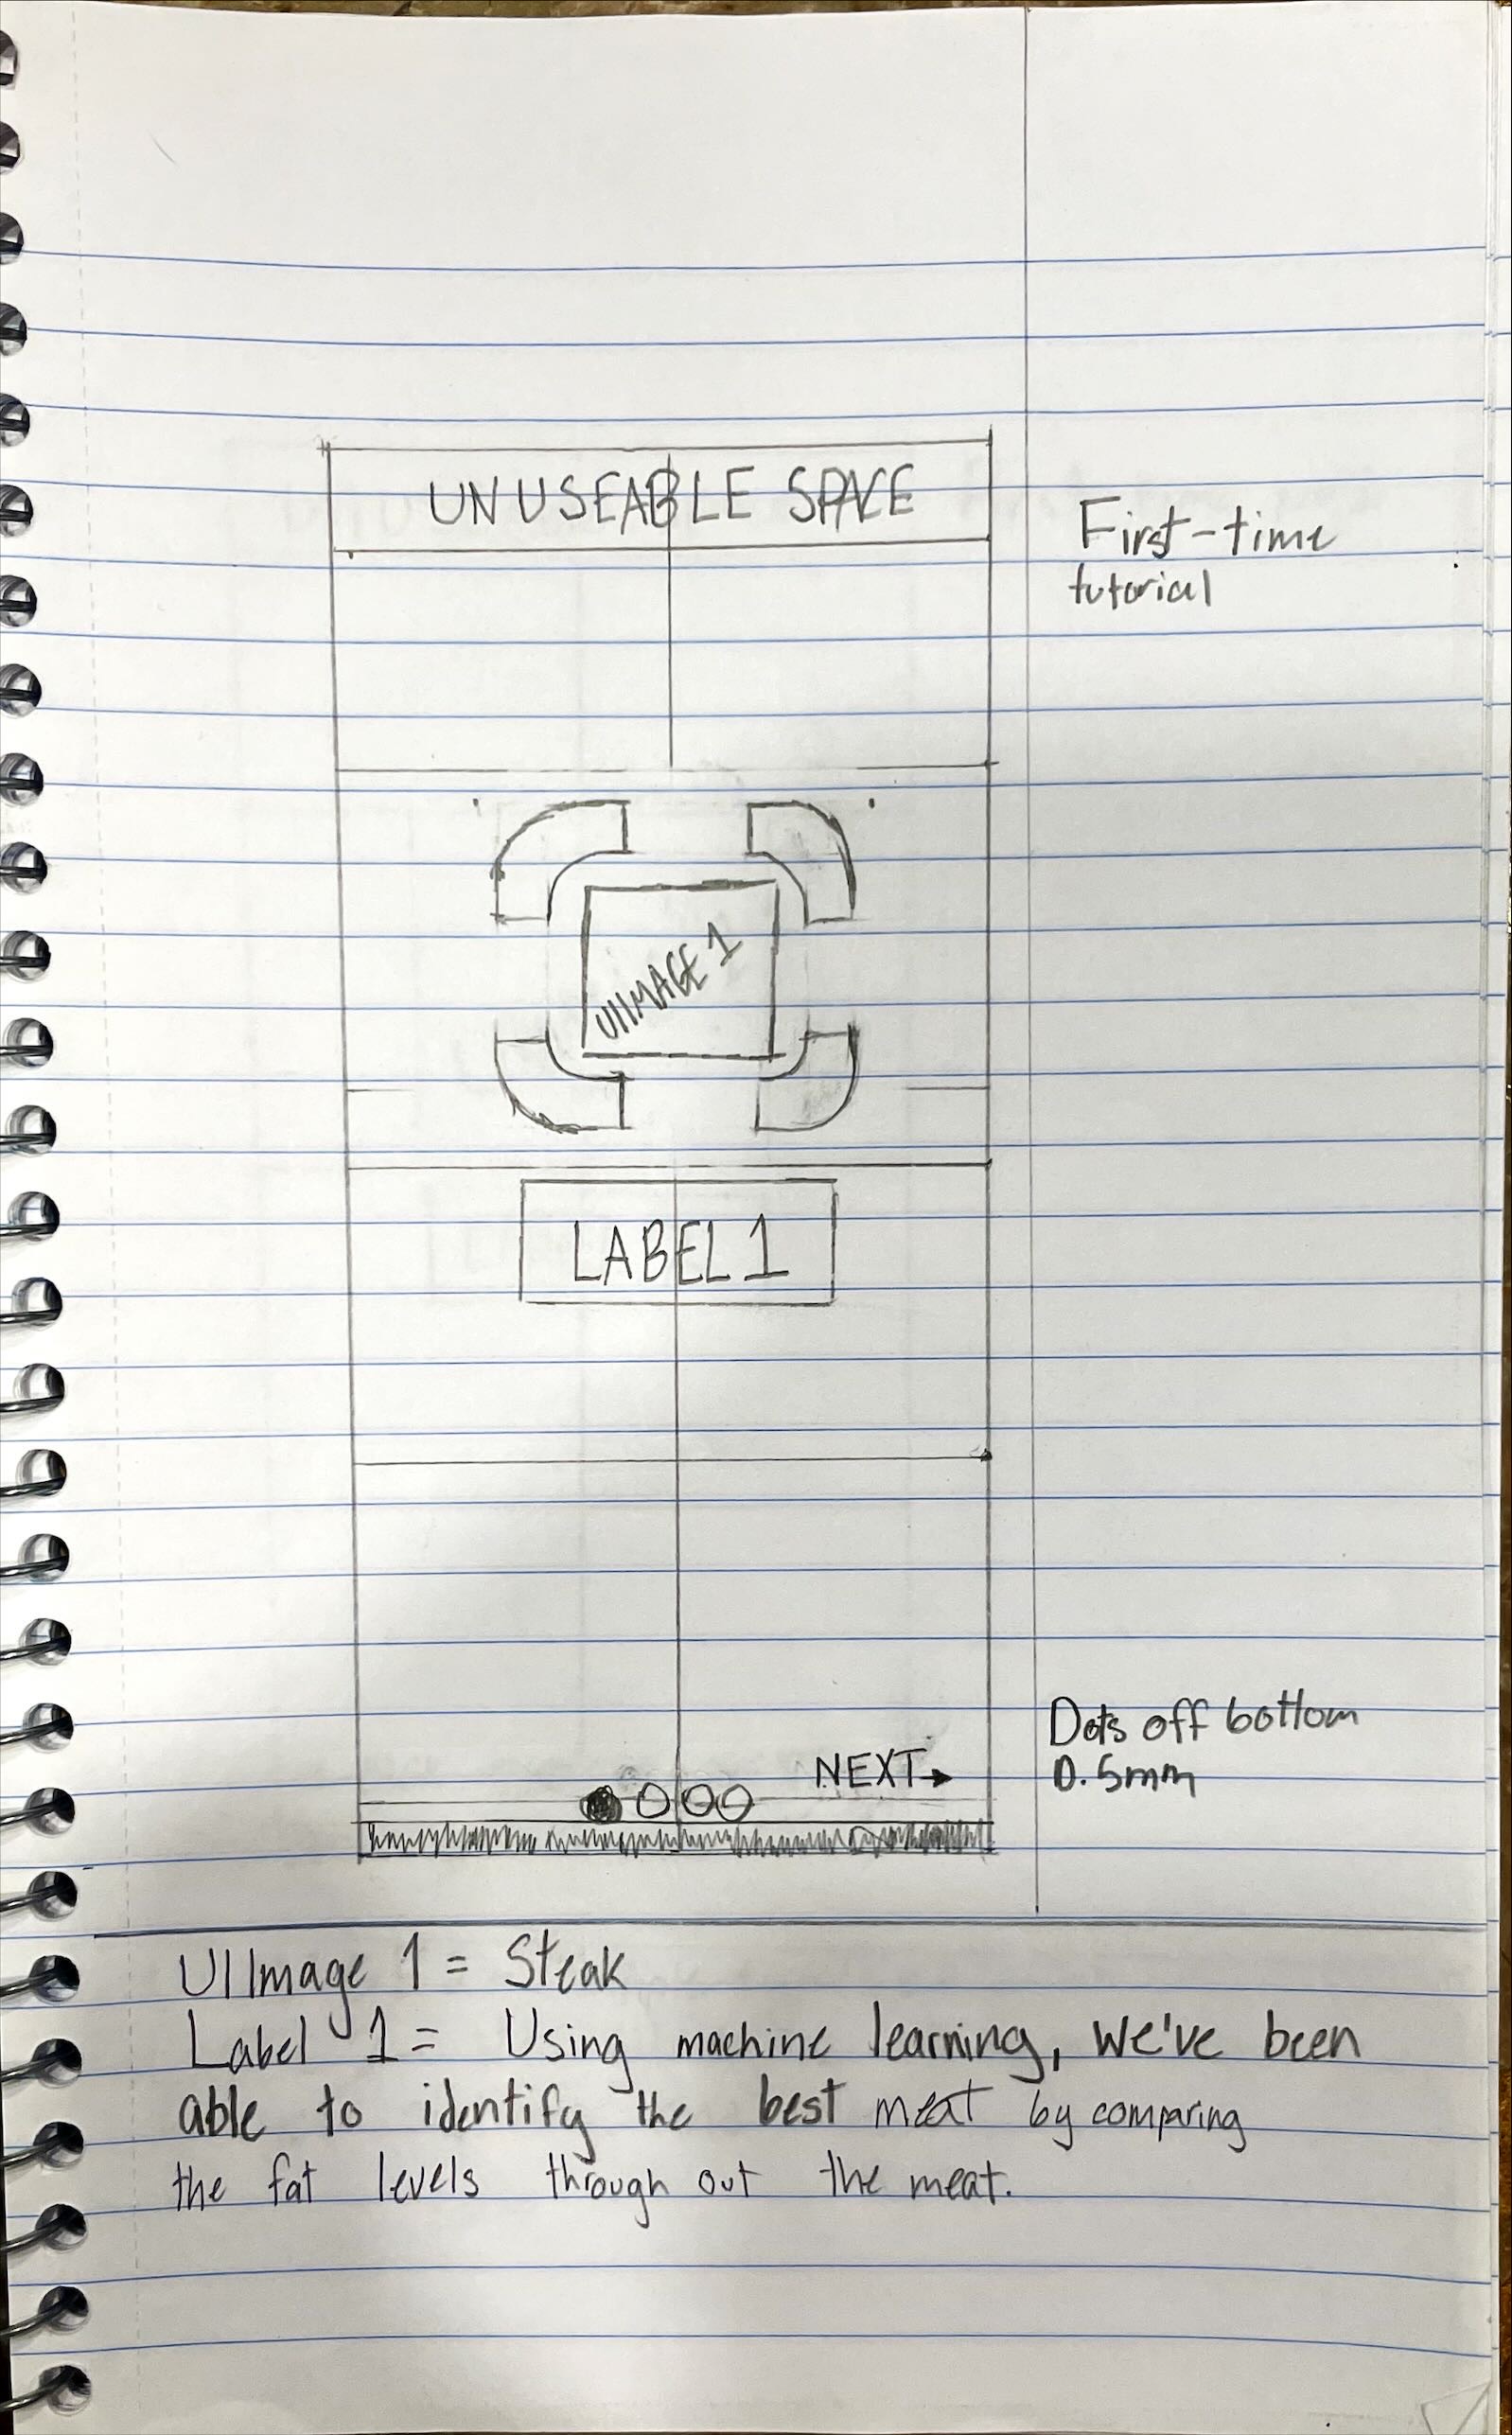 UNUSEABLE SPACE
First-time
tutorial
UIIMAGE 1
LABEL 1
NEXT→
Dots off bottom
0.5mm
UIImage 1 = Steak
Label 1 = Using machine learning, we've been
able to identify the best meat by comparing
the fat levels through out the meat.